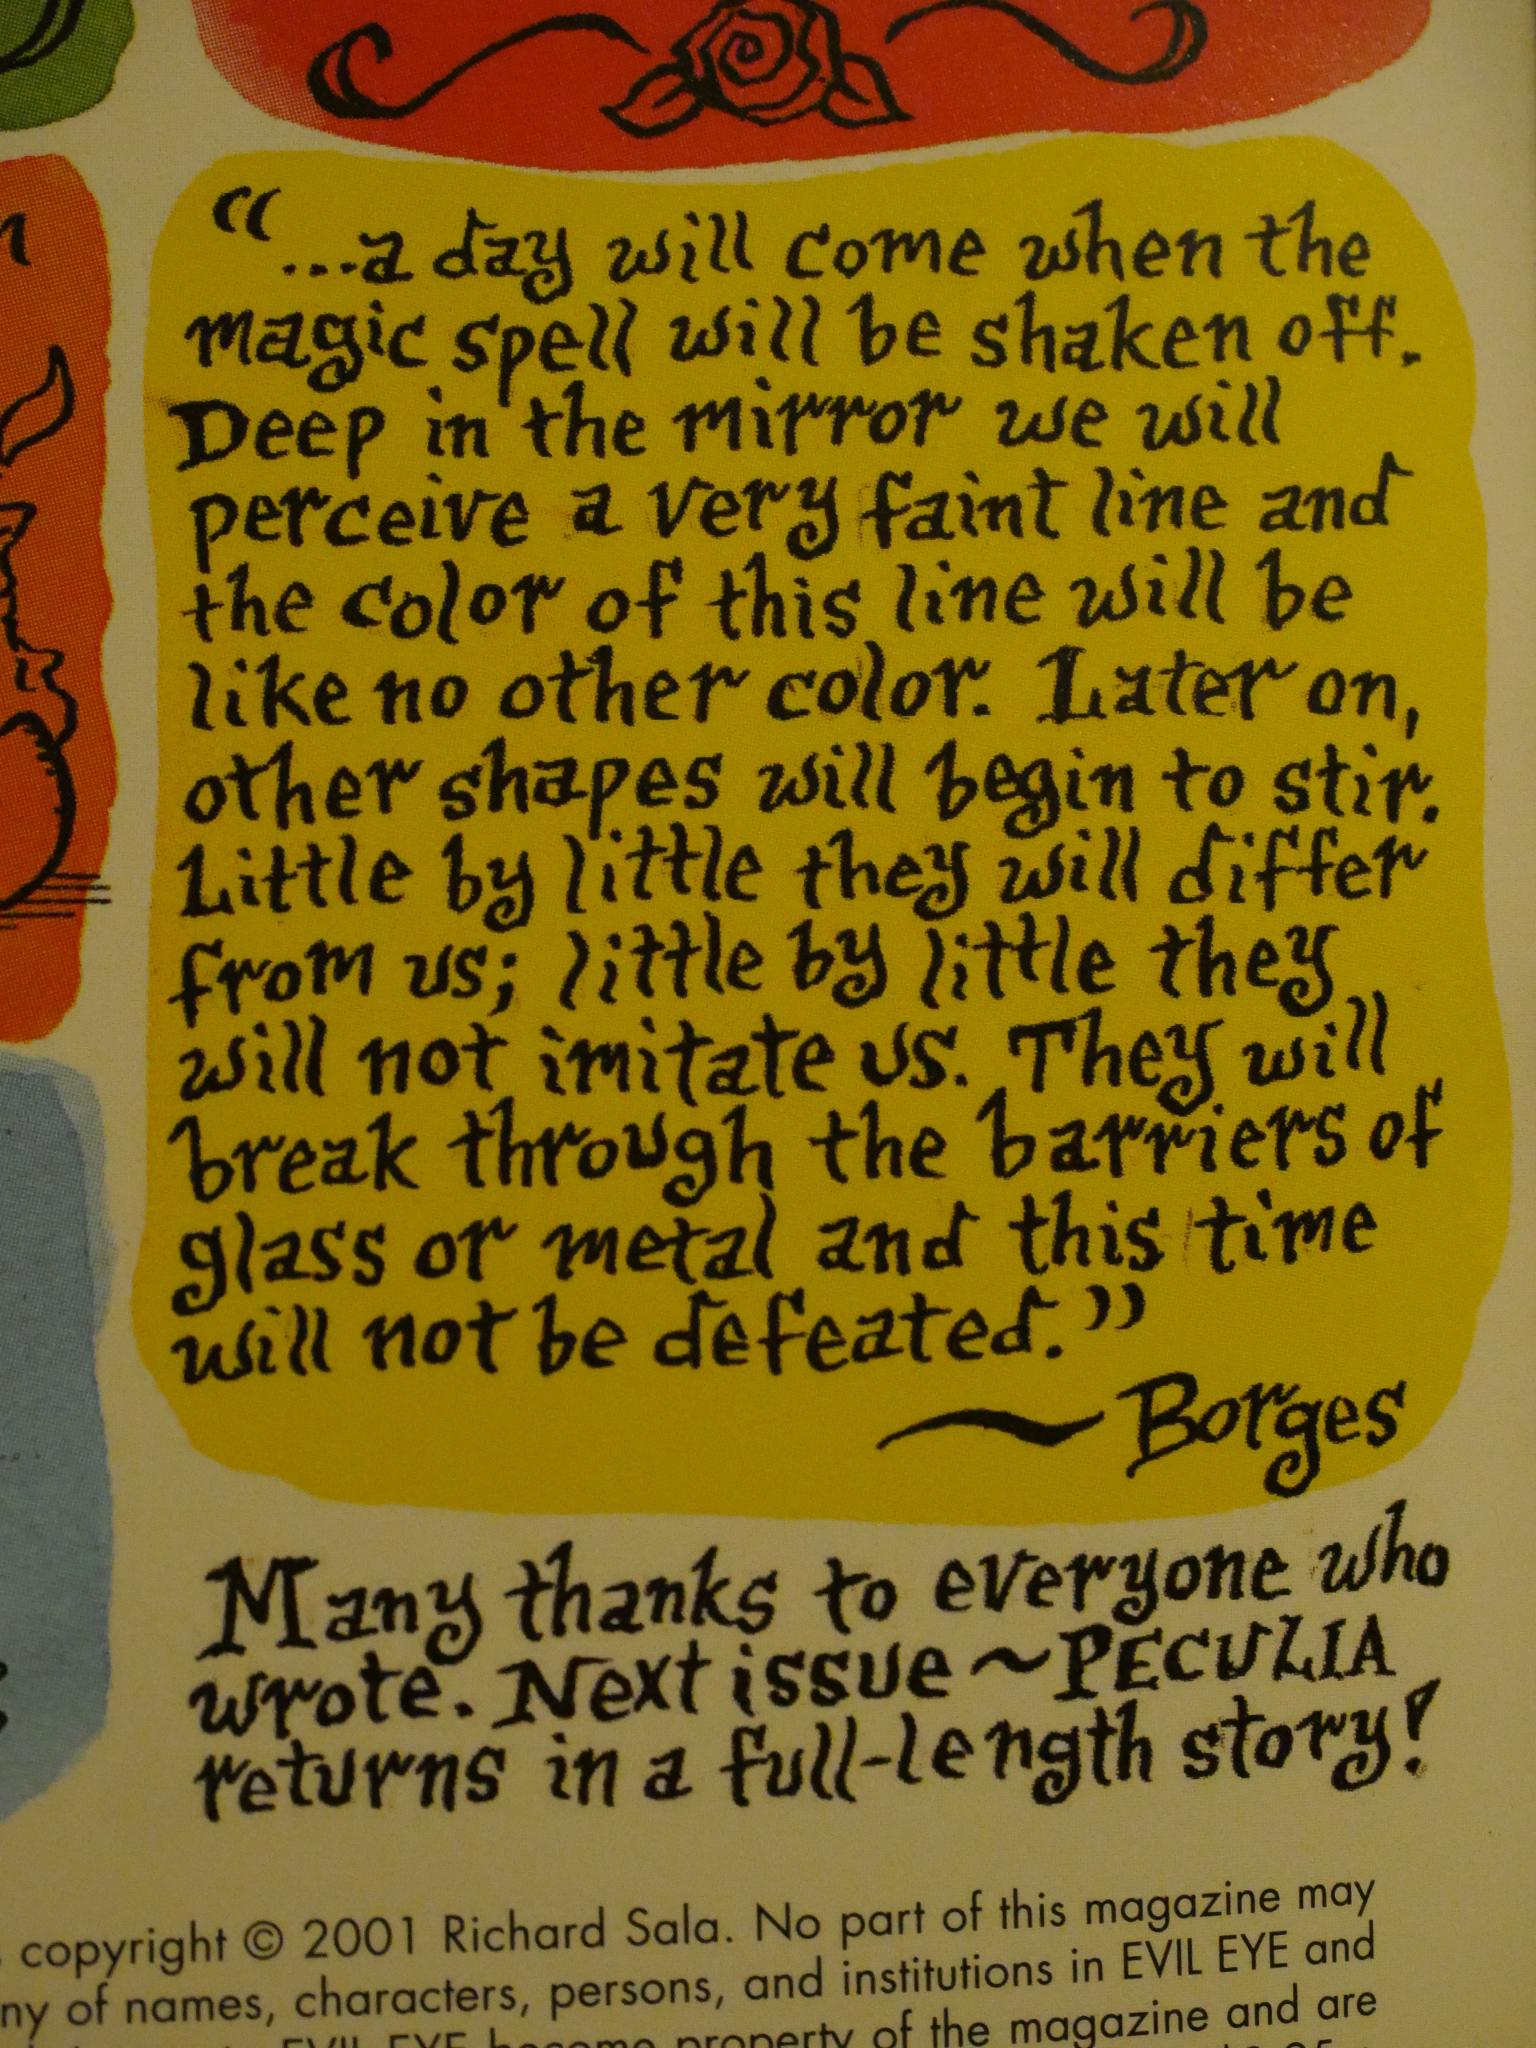 “...a day will come when the
magic spell will be shaken off.
Deep in the mirror we will
perceive a very faint line and
the color of this line will be
like no other color. Later on,
other shapes will begin to stir.
Little by little they will differ
from us; little by little they
will not imitate us. They will
break through the barriers of
glass or metal and this time
will not be defeated.”
~Borges
Many thanks to everyone who
wrote. Next issue~PECULIA
returns in a full-length story!
copyright © 2001 Richard Sala. No part of this magazine may
of names, characters, persons, and institutions in EVIL EYE and
EVIL EYE become property of the magazine and are